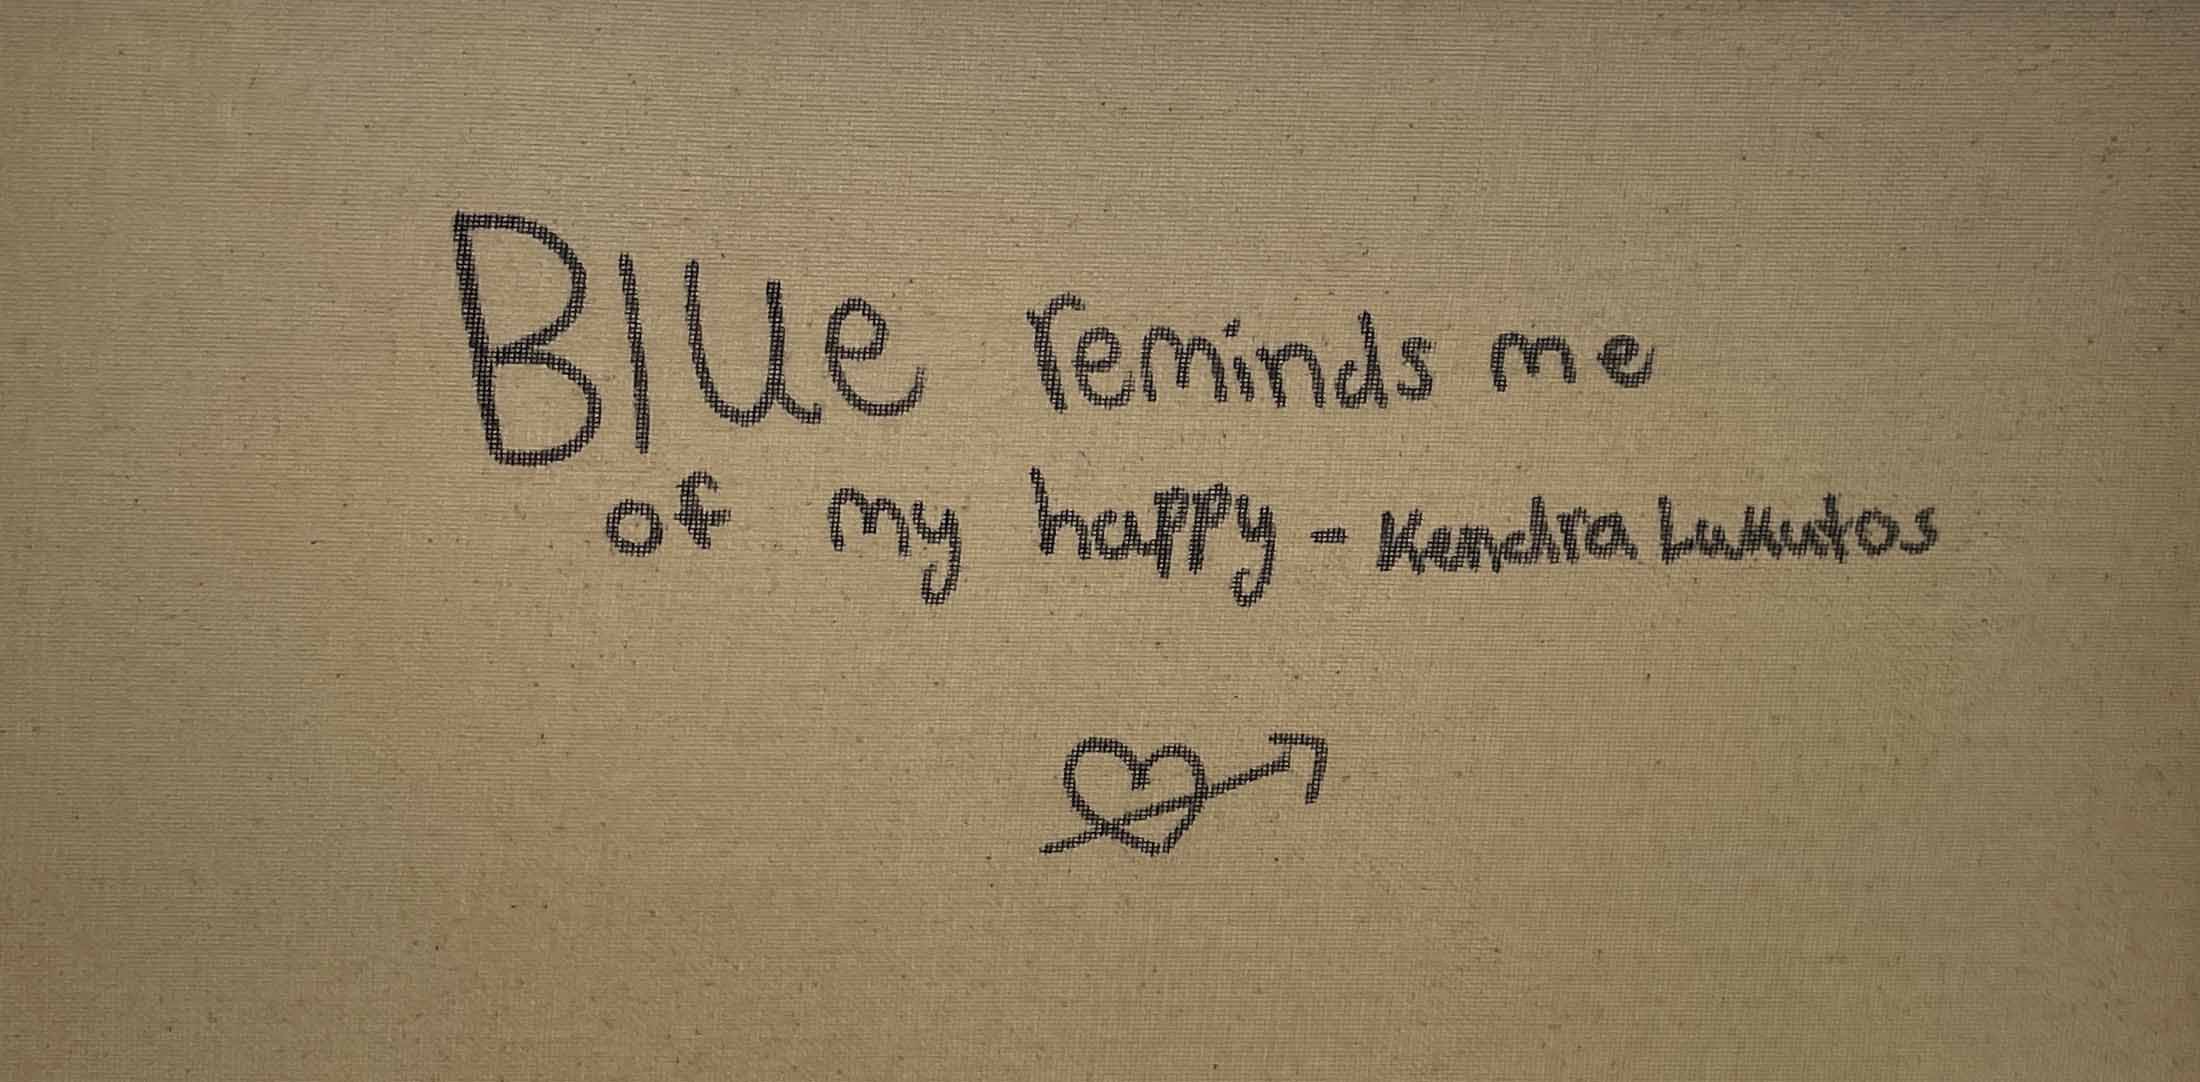 Blue reminds me
of my happy - Kendra Lukutos